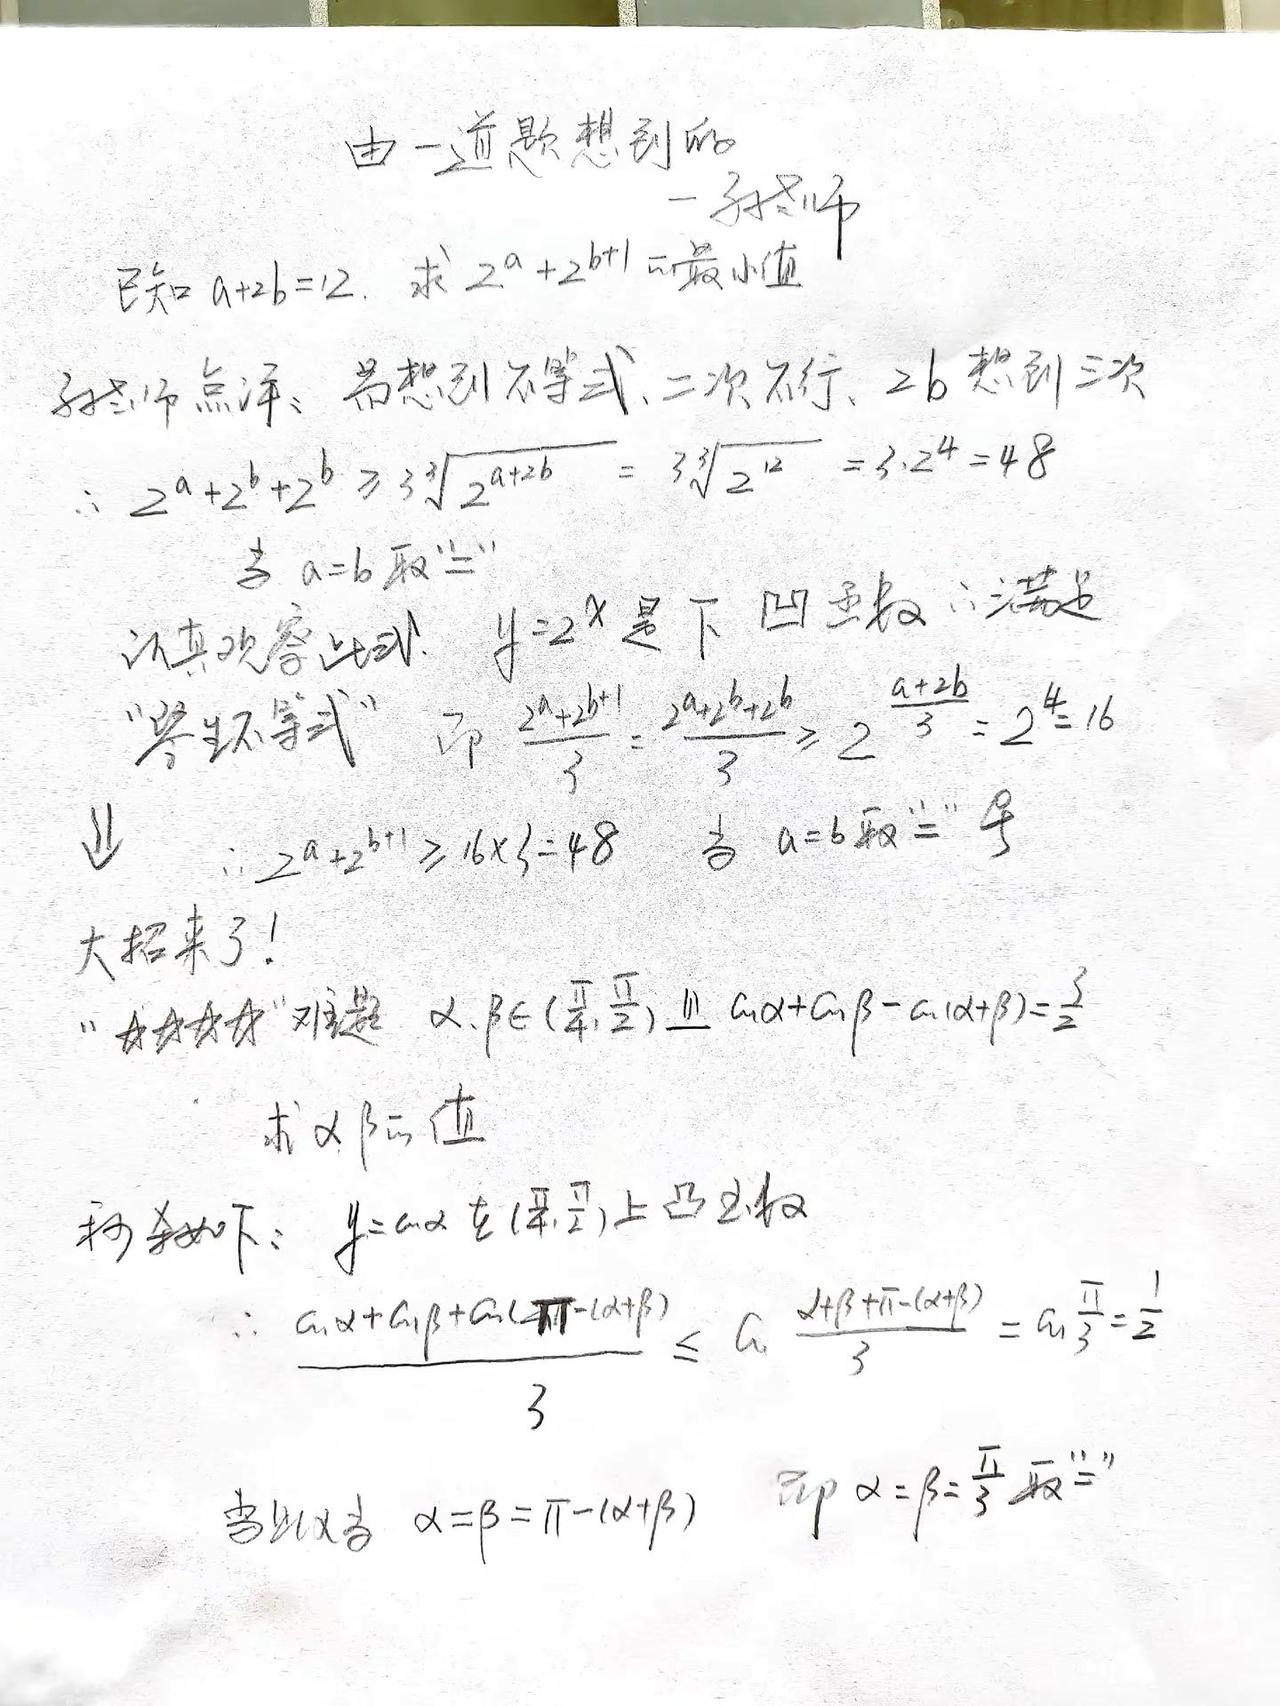 由一道题想到的
—孙老师
已知 a+2b=12. 求 2^a+2^{b+1} 的最小值
孙老师点评: 易想到不等式、二次不行、2b 想到三次
∴ 2^a+2^b+2^b ≥ 3∛(2^{a+2b}) = 3∛(2^{12}) = 3·2^4 = 48
当 a=b 取"="
认真观察此式. y=2^x 是下凹函数 ∴满足
"琴生不等式" 即 (2^a+2^{b+1})/3 = (2^a+2^b+2^b)/3 ≥ 2^{(a+2b)/3} = 2^4 = 16
⇓ ∴ 2^a+2^{b+1} ≥ 16×3=48 当 a=b 取"="号
大招来了!
"☆☆☆☆"难题 α.β∈(π/4, π/2) 且 cosα+cosβ-cos(α+β)=3/2
求 α.β的值
秒杀如下: y=cosα 在(π/4, π/2)上凸函数
∴ (cosα+cosβ+cos(π-(α+β)))/3 ≤ cos (α+β+π-(α+β))/3 = cos π/3 = 1/2
当且仅当 α=β=π-(α+β) 即 α=β=π/3 取"="